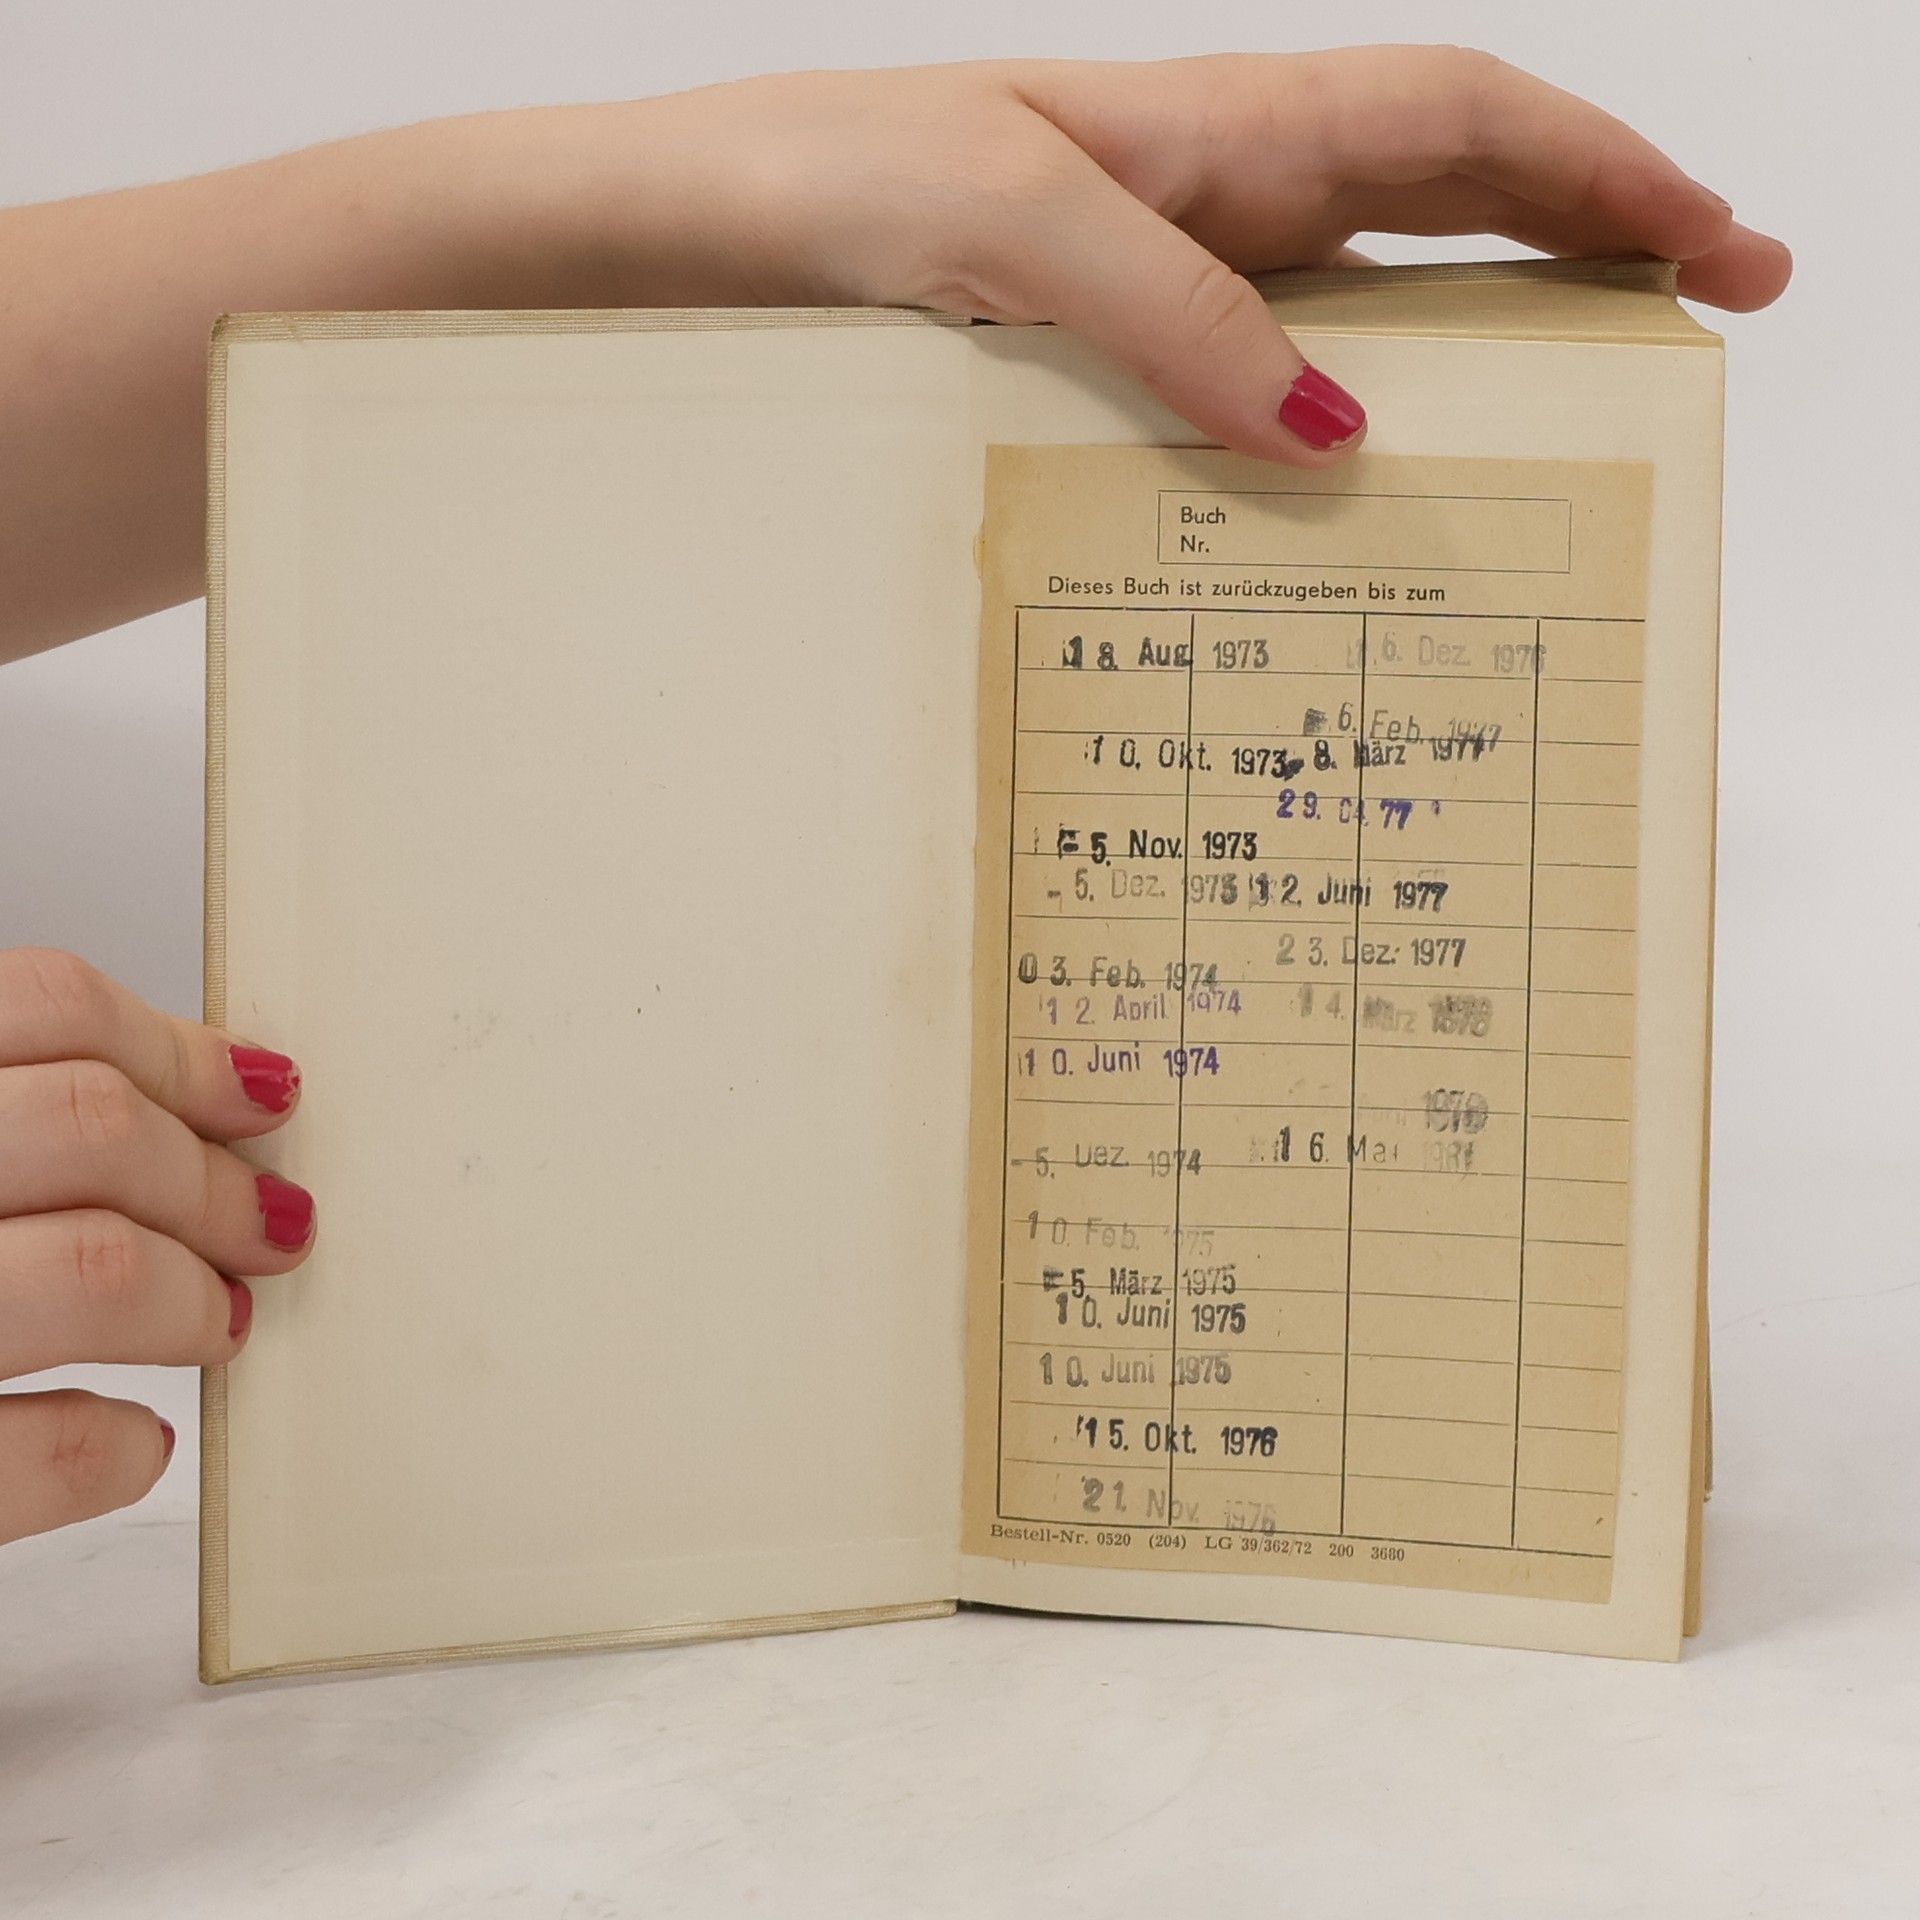 Buch
Nr.
Dieses Buch ist zurückzugeben bis zum
18. Aug. 1973
10. Okt. 1973
- 5. Nov. 1973
- 5. Dez. 1973
03. Feb. 1974
12. April 1974
10. Juni 1974
- 5. Dez. 1974
10. Feb. 1975
- 5. März 1975
10. Juni 1975
10. Juni 1975
15. Okt. 1976
21. Nov. 1976
6. Dez. 1976
6. Feb. 1977
8. März 1977
29. 04. 77
12. Juni 1977
23. Dez. 1977
14. März
16. Mai
Bestell-Nr. 0520 (204) LG 39/362/72 200 3680